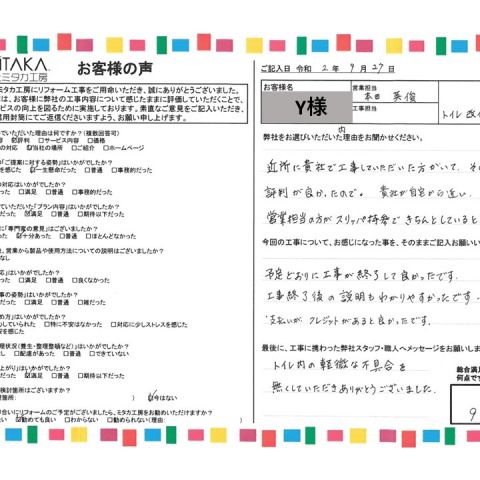 ITAKA
ミタカ工房
お客様の声
ミタカ工房にリフォーム工事をご用命いただき、誠にありがとうございました。
は、お客様に弊社の工事内容について感じたままに評価していただくことで、
ビスの向上を図るために実施しております。素直なご意見をご記入いただき、
用封筒にてご返信くださいますよう、お願い申し上げます。
でいただいた理由は何ですか?(複数回答可)
□評判 □サービス内容 □価格
の対応 ☑当社の場所 □ご紹介 □ホームページ
「ご提案に対する姿勢」はいかがでしたか?
を感じた ☑一生懸命だった □普通 □事務的だった
の対応はいかがでしたか?
だった □満足 □普通 □事務的だった
ていただいた「プラン内容」はいかがでしたか?
だった ☑満足 □普通 □期待以下だった
に「専門家の意見」はございましたか?
った ☑十分あった □普通 □ほとんどなかった
、営業から製品や使用方法についての説明はございましたか?
なし
応」はいかがでしたか?
った □満足 □普通 □良くなかった
事の姿勢」はいかがでしたか?
だった □満足 □普通 □雑だった
め方」はいかがでしたか?
していられた □特に不安はなかった □対応に少しストレスを感じた
安を感じた
理状況(養生・整理整頓など)」はいかがでしたか?
し □配慮があった □できていない
上がり」はいかがでしたか?
った ☑満足 □普通 □期待以下だった
検討箇所はございますか?
箇所: ) ☑今はない
合いにリフォームのご予定がございましたら、ミタカ工房をお勧めいただけますか?
たい ☑勧めても良い □わからない □勧められない(理由: )
ご記入日 令和 2年 9月27日
お客様名
Y様
営業担当
本田 英俊
工事担当
トイレ改
弊社をお選びいただいた理由をお聞かせください。
内
近所に貴社で工事していただいた方がいて、そ
評判が良かったので。 貴社が自宅から近い。
営業担当の方がスリッパ持参できちんとしていると
今回の工事について、お感じになった事を、そのままご記入お願い
予定どおりに工事が終了して良かったです。
工事終了後の説明もわかりやすかったです。
支払いが、クレジットがあると良かったです。
最後に、工事に携わった弊社スタッフ・職人へメッセージをお願いしま
トイレ内の軽微な不具合を
無くしていただきありがとうございました。
総合満足
何点です
9